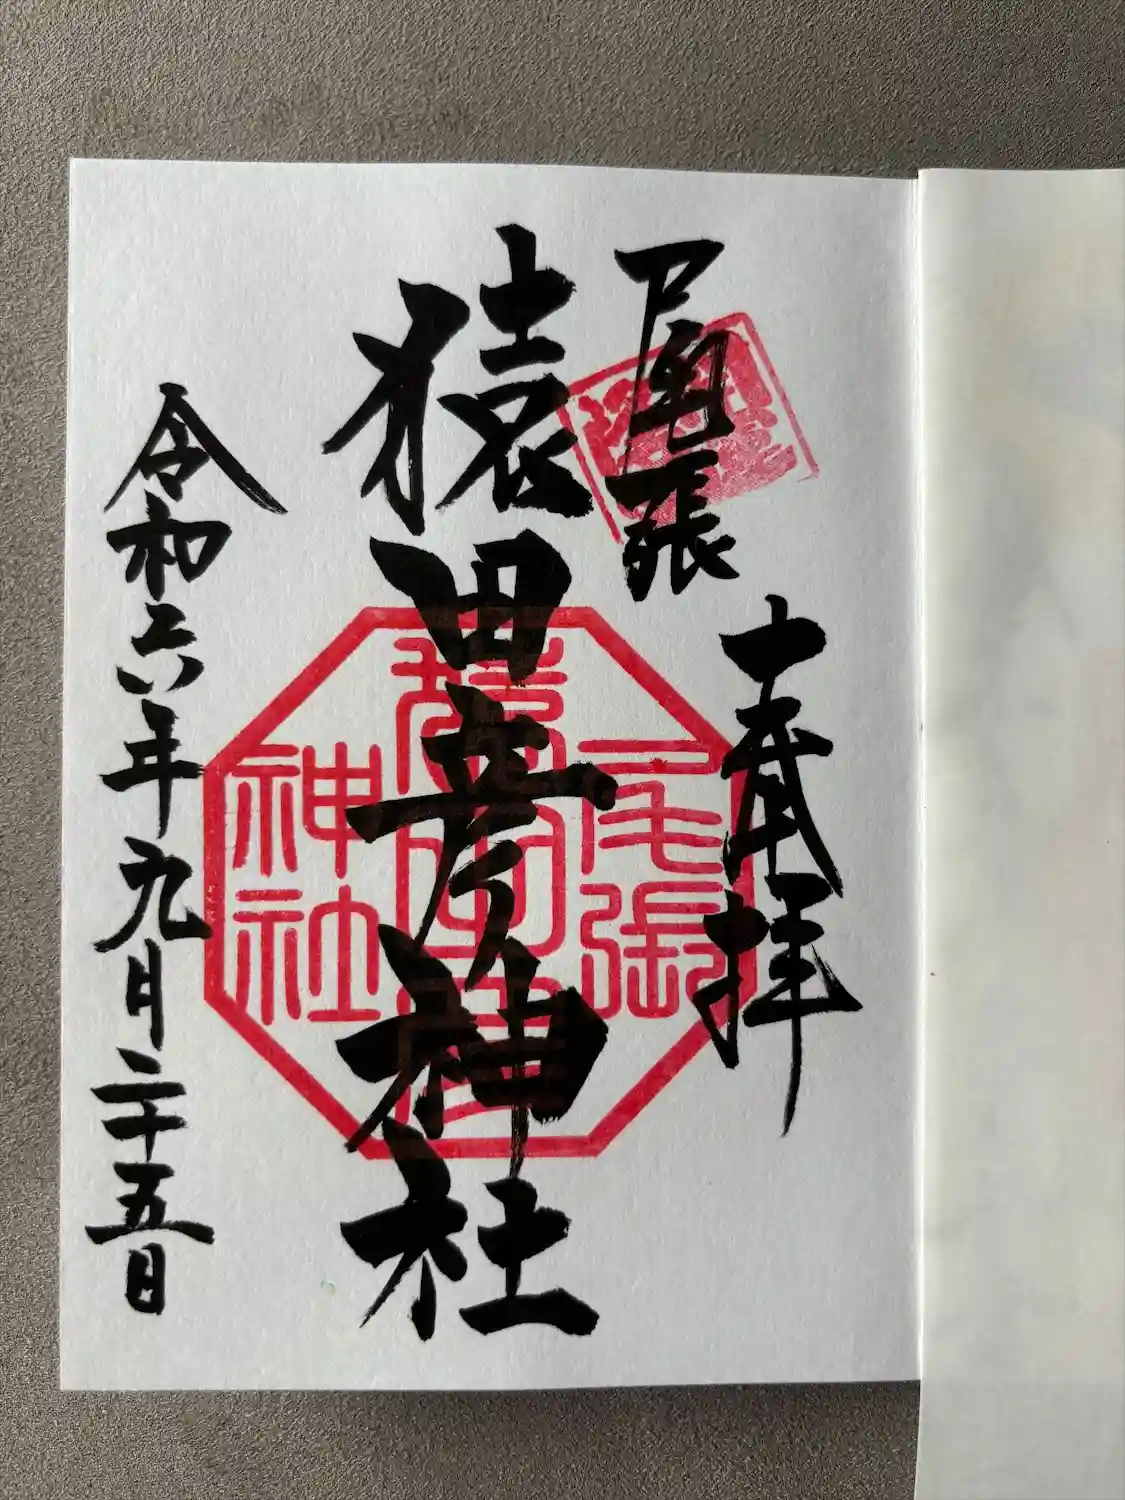 奉拝
尾張
猿田彦神社
令和六年九月二十五日
尾張
神社